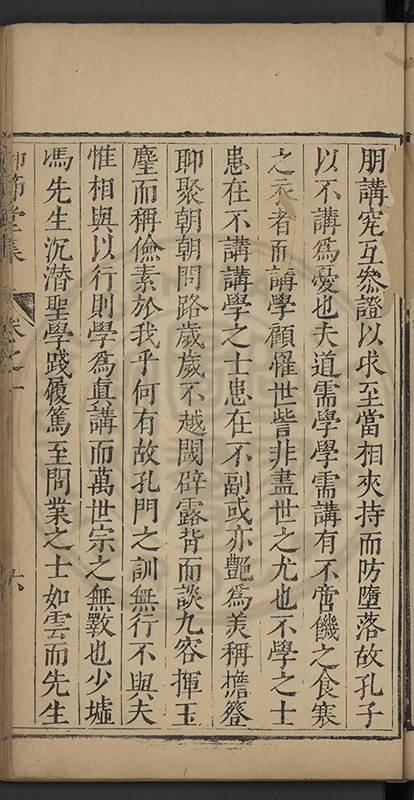 朋講究互參證以求至當相夾持而防墮落故孔子
以不講為憂也夫道需學學需講有不啻饑之食寒
之衣者而講學顧懼世訾非盡世之尤也不學之士
患在不講講學之士患在不副或亦艷為美稱擔簦
聊聚朝朝問路歲歲不越閾辟露背而談九容揮玉
麈而稱儉素於我乎何有故孔門之訓無行不與夫
惟相與以行則學為眞講而萬世宗之無斁也少墟
馮先生沉潛聖學踐履篤至問業之士如雲而先生
節堂集
卷之一
六